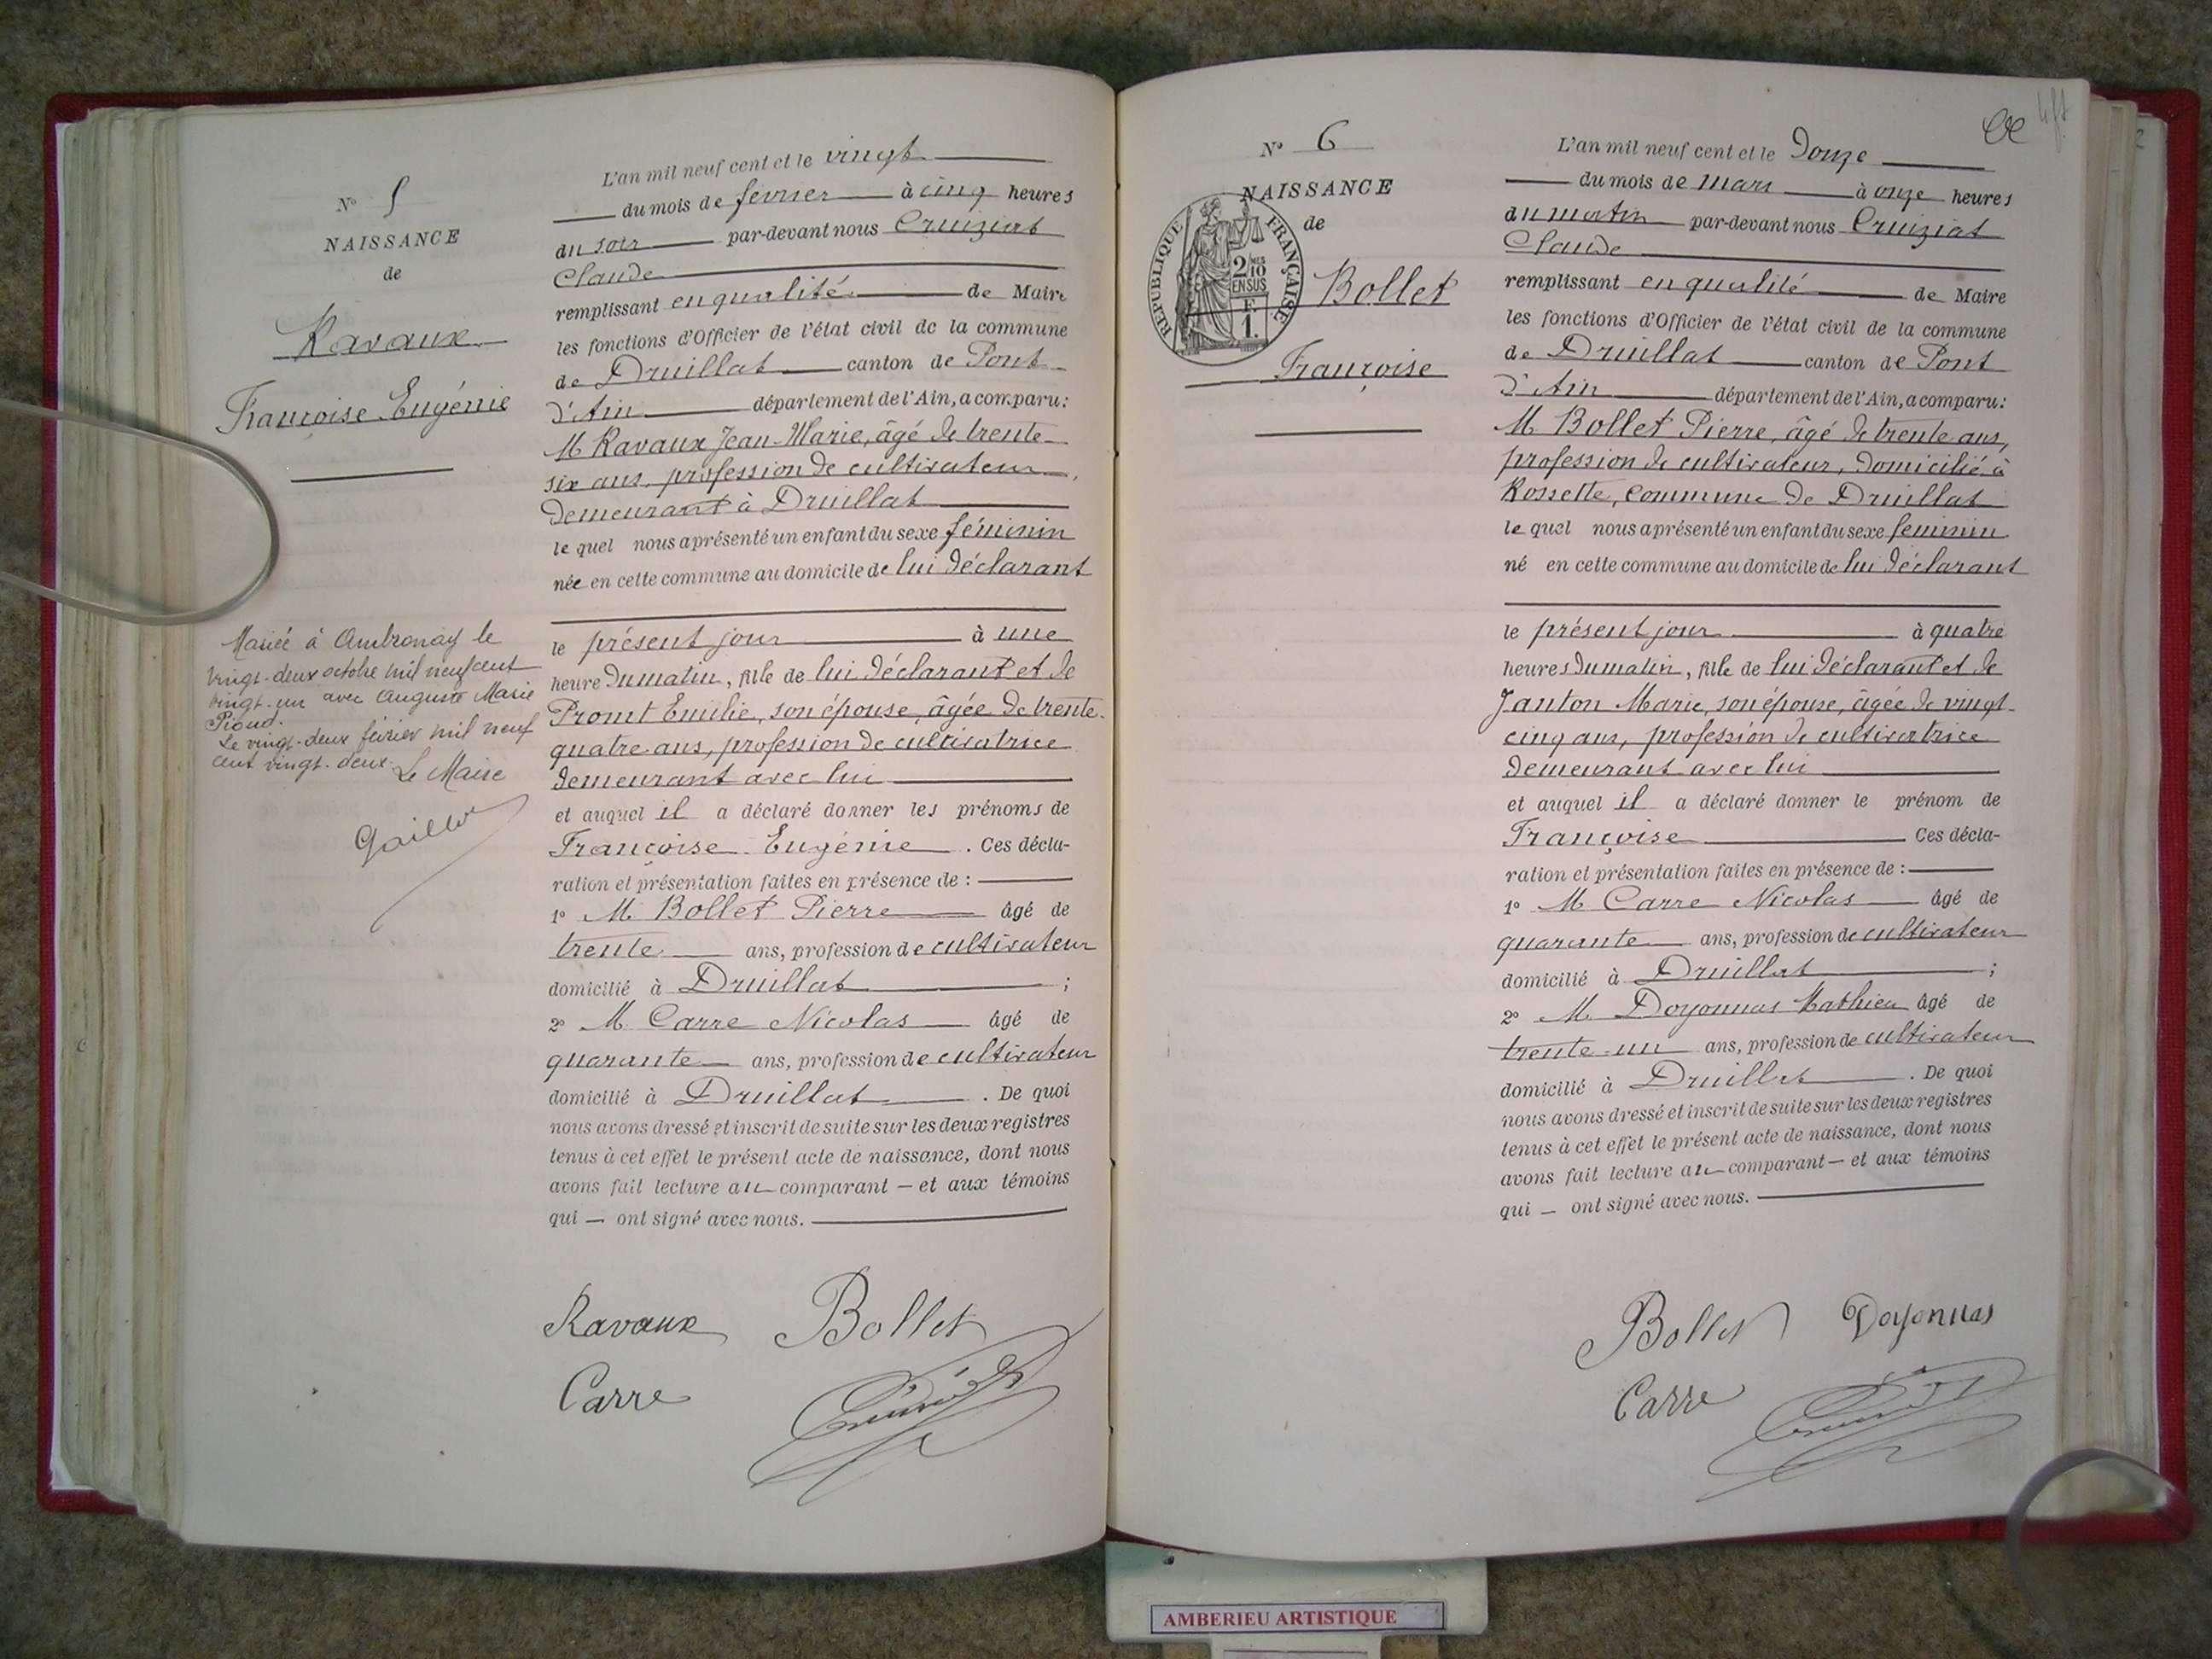 N° 5
NAISSANCE
de
Ravaux
Françoise Eugénie
Mariée à Ambronay le
vingt-deux octobre mil neuf cent
vingt-un avec Auguste Marie
Pioud.
Le vingt-deux février mil neuf
cent vingt-deux. Le Maire
L'an mil neuf cent et le vingt
du mois de fevrier à cinq heures
du soir par-devant nous Cruiziat
Claude
remplissant en qualité de Maire
les fonctions d'Officier de l'état civil de la commune
de Druillat canton de Pont
d'Ain département de l'Ain, a comparu:
M Ravaux Jean-Marie, âgé de trente-
six ans, profession de cultivateur,
demeurant à Druillat
le quel nous a présenté un enfant du sexe féminin
née en cette commune au domicile de lui déclarant
le présent jour à une
heure du matin, fille de lui déclarant et de
Promt Emilie, son épouse, âgée de trente-
quatre ans, profession de cultivatrice
demeurant avec lui
et auquel il a déclaré donner les prénoms de
Françoise Eugénie . Ces décla-
ration et présentation faites en présence de :
1° M Bollet Pierre âgé de
trente ans, profession de cultivateur
domicilié à Druillat ;
2° M Carre Nicolas âgé de
quarante ans, profession de cultivateur
domicilié à Druillat . De quoi
nous avons dressé et inscrit de suite sur les deux registres
tenus à cet effet le présent acte de naissance, dont nous
avons fait lecture au comparant — et aux témoins
qui — ont signé avec nous.
Ravaux Bollet
Carre
N° 6
NAISSANCE
de
Bollet
Françoise
RÉPUBLIQUE FRANÇAISE
2/10
EN SUS
F.
1.
L'an mil neuf cent et le Douze
du mois de mars à onze heures
du matin par-devant nous Cruiziat
Claude
remplissant en qualité de Maire
les fonctions d'Officier de l'état civil de la commune
de Druillat canton de Pont
d'Ain département de l'Ain, a comparu:
M Bollet Pierre, âgé de trente ans,
profession de cultivateur, domicilié à
Rossette, commune de Druillat
le quel nous a présenté un enfant du sexe feminin
né en cette commune au domicile de lui déclarant
le présent jour à quatre
heures du matin, fille de lui déclarant et de
Janton Marie, son épouse, âgée de vingt-
cinq ans, profession de cultivatrice
demeurant avec lui
et auquel il a déclaré donner le prénom de
Françoise Ces décla-
ration et présentation faites en présence de :
1° M Carre Nicolas âgé de
quarante ans, profession de cultivateur
domicilié à Druillat ;
2° M. Doyonnas Mathieu âgé de
trente-un ans, profession de cultivateur
domicilié à Druillat . De quoi
nous avons dressé et inscrit de suite sur les deux registres
tenus à cet effet le présent acte de naissance, dont nous
avons fait lecture au comparant — et aux témoins
qui — ont signé avec nous.
Bollet Doyonnas
Carre
AMBERIEU ARTISTIQUE